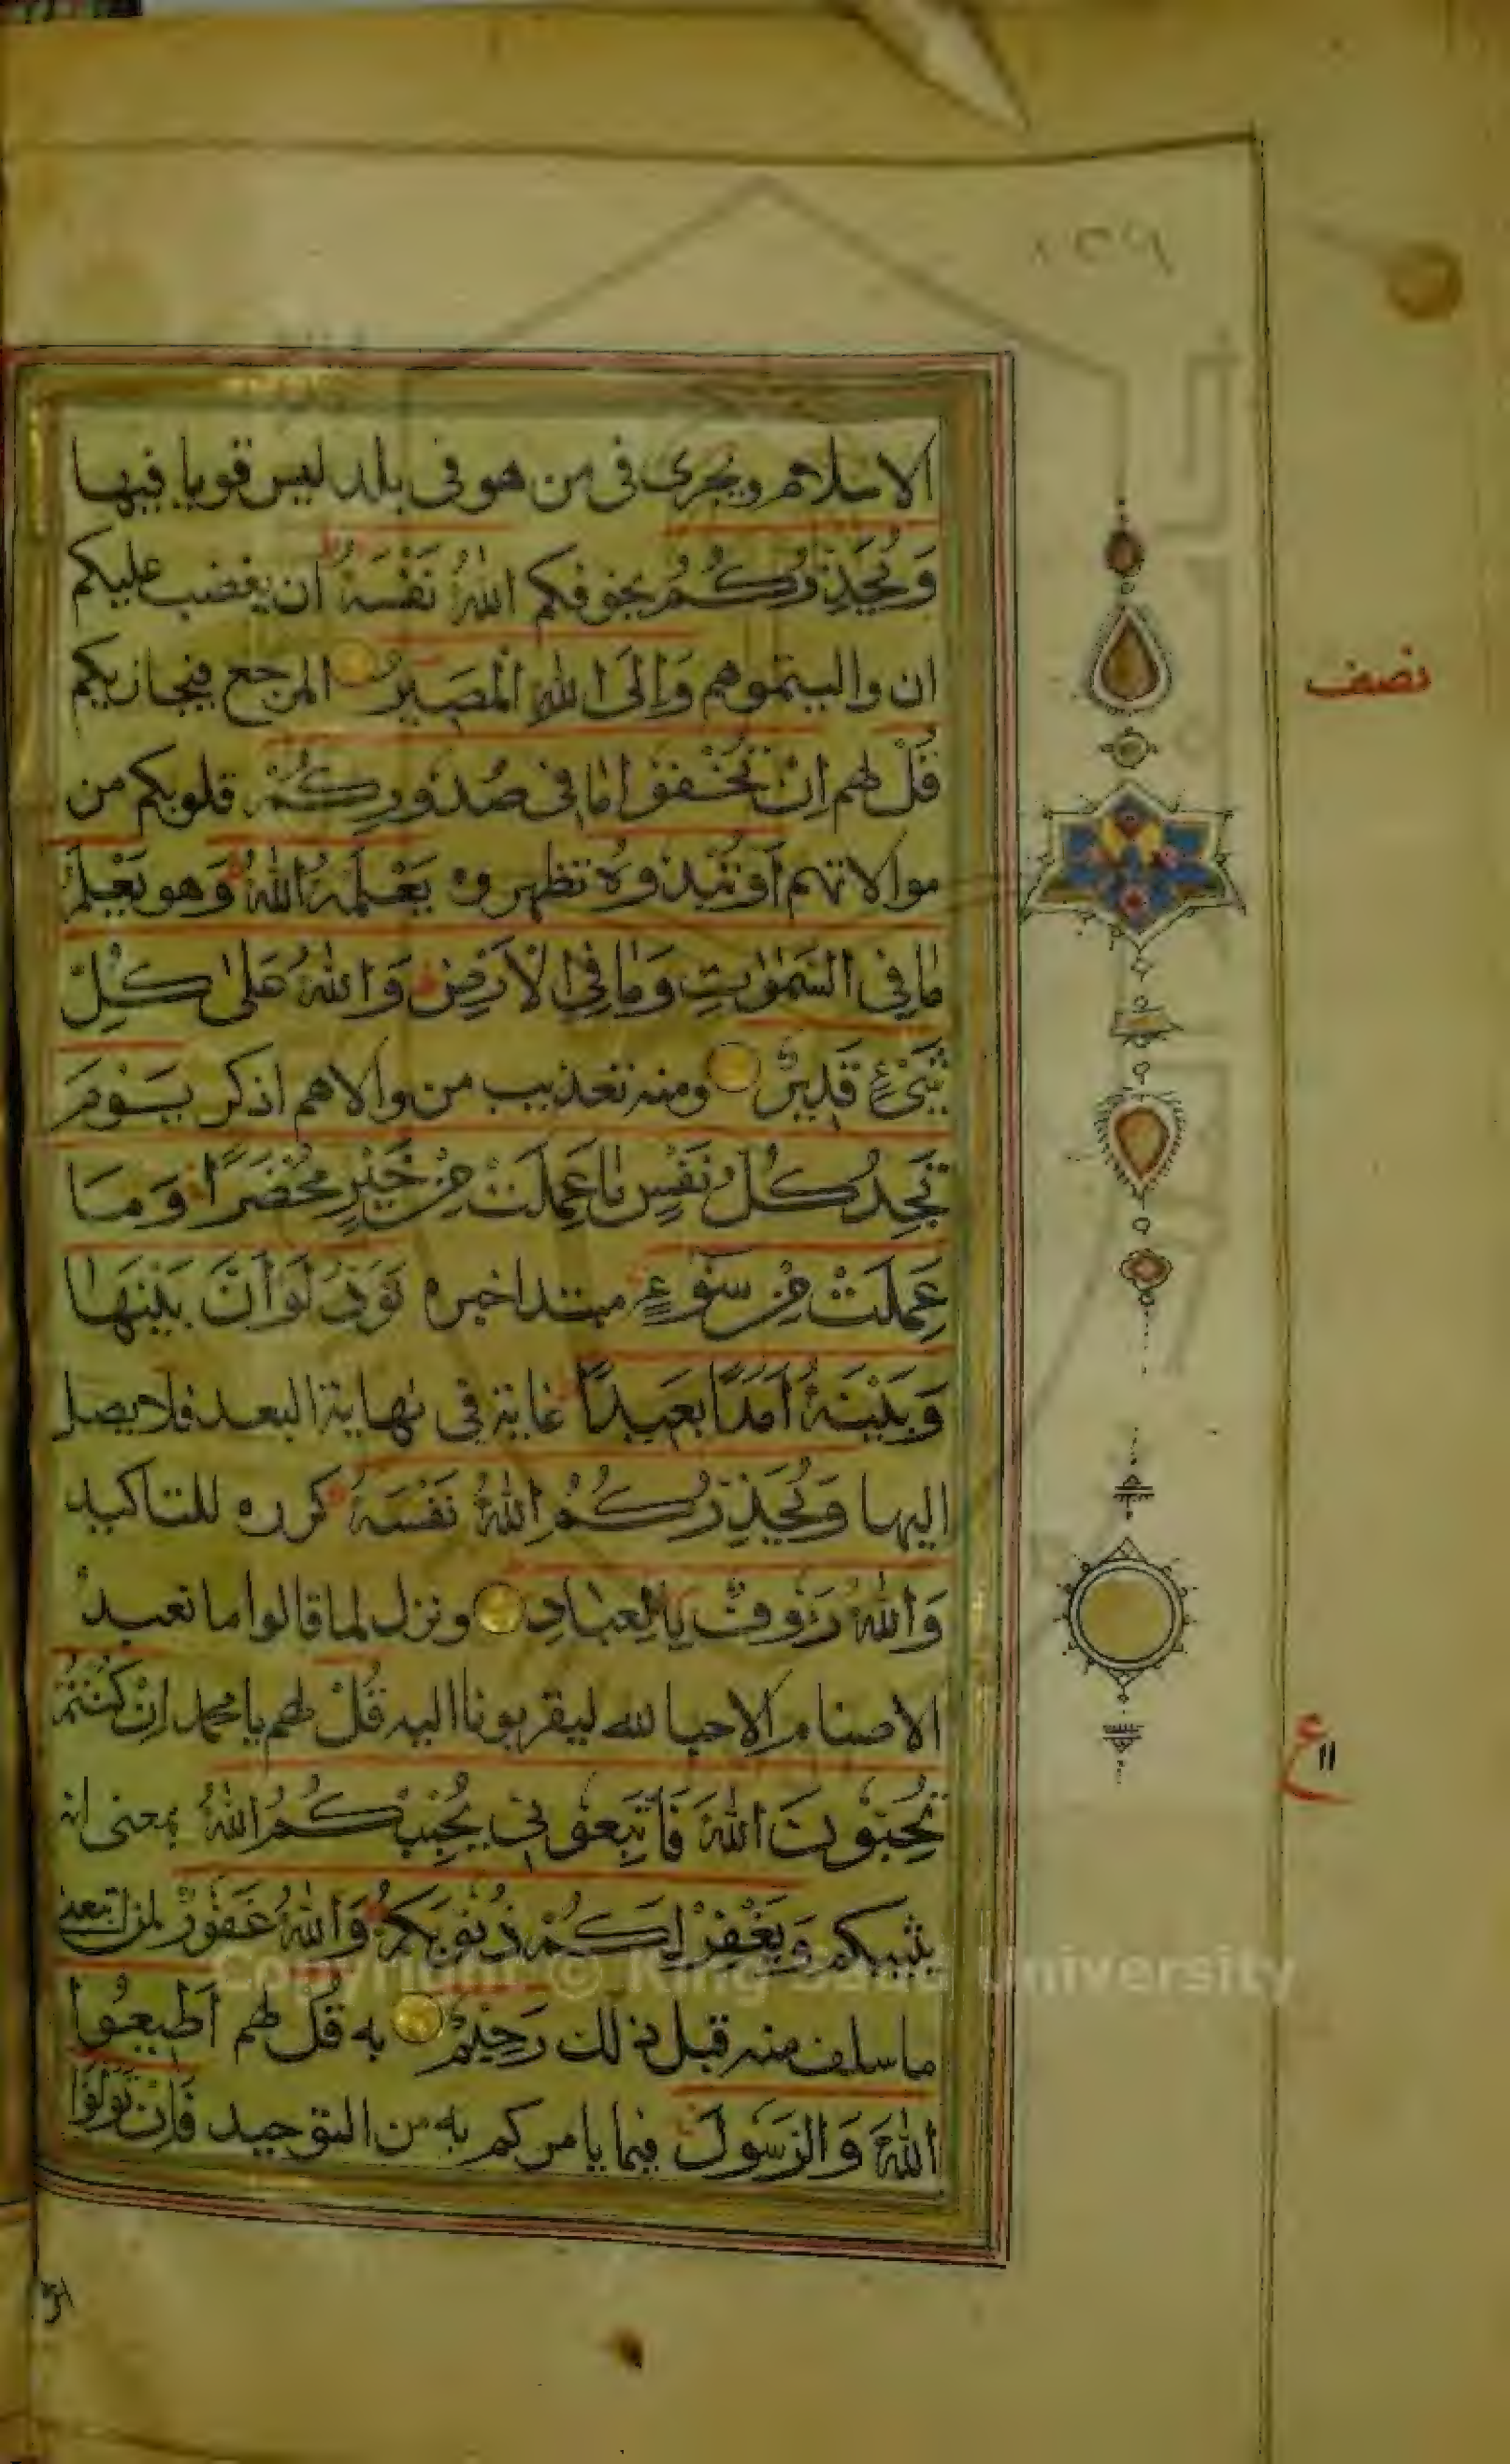 الاسلام ويجرى فى من هو فى بلد ليس قويا فيها
وَيُحَذِّرُكُمُ يخوفكم اللّٰهُ نَفْسَهٗ ان يغضب عليكم
ان واليتموهم وَاِلَى اللّٰهِ الْمَصِيْرُ المرجع فيجازيكم
قُلْ لهم اِنْ تُخْفُوْا مَا فِى صُدُوْرِكُمْ قلوبكم من
موالاتهم اَوْ تُبْدُوْهُ تظهروه يَعْلَمْهُ اللّٰهُ وَهو يَعْلَمُ
مَا فِى السَّمٰوٰتِ وَمَا فِى الْاَرْضِ وَاللّٰهُ عَلٰى كُلِّ
شَىْءٍ قَدِيْرٌ ومنه تعذيب من والاهم اذكر يَوْمَ
تَجِدُ كُلُّ نَفْسٍ مَا عَمِلَتْ مِنْ خَيْرٍ مُحْضَرًا وَمَا
عَمِلَتْ مِنْ سُوْءٍ مبتدا خبره تَوَدُّ لَوْ اَنَّ بَيْنَهَا
وَبَيْنَهٗ اَمَدًا بَعِيْدًا غاية فى نهاية البعد فلا يصل
اليها وَيُحَذِّرُكُمُ اللّٰهُ نَفْسَهٗ كرره للتاكيد
وَاللّٰهُ رَءُوْفٌ بِالْعِبَادِ ونزل لما قالوا ما نعبد
الاصنام الا حبا لله ليقربونا اليه قُلْ لهم يا محمد اِنْ كُنْتُمْ
تُحِبُّوْنَ اللّٰهَ فَاتَّبِعُوْنِى يُحْبِبْكُمُ اللّٰهُ بمعنى انه
يثيبكم وَيَغْفِرْ لَكُمْ ذُنُوْبَكُمْ وَاللّٰهُ غَفُوْرٌ لمن اتبعنى
ما سلف منه قبل ذلك رَحِيْمٌ به قُلْ لهم اَطِيْعُوا
اللّٰهَ وَالرَّسُوْلَ فيما يامركم به من التوحيد فَاِنْ تَوَلَّوْا
نصف
ع ١١
Copyright © King Saud University